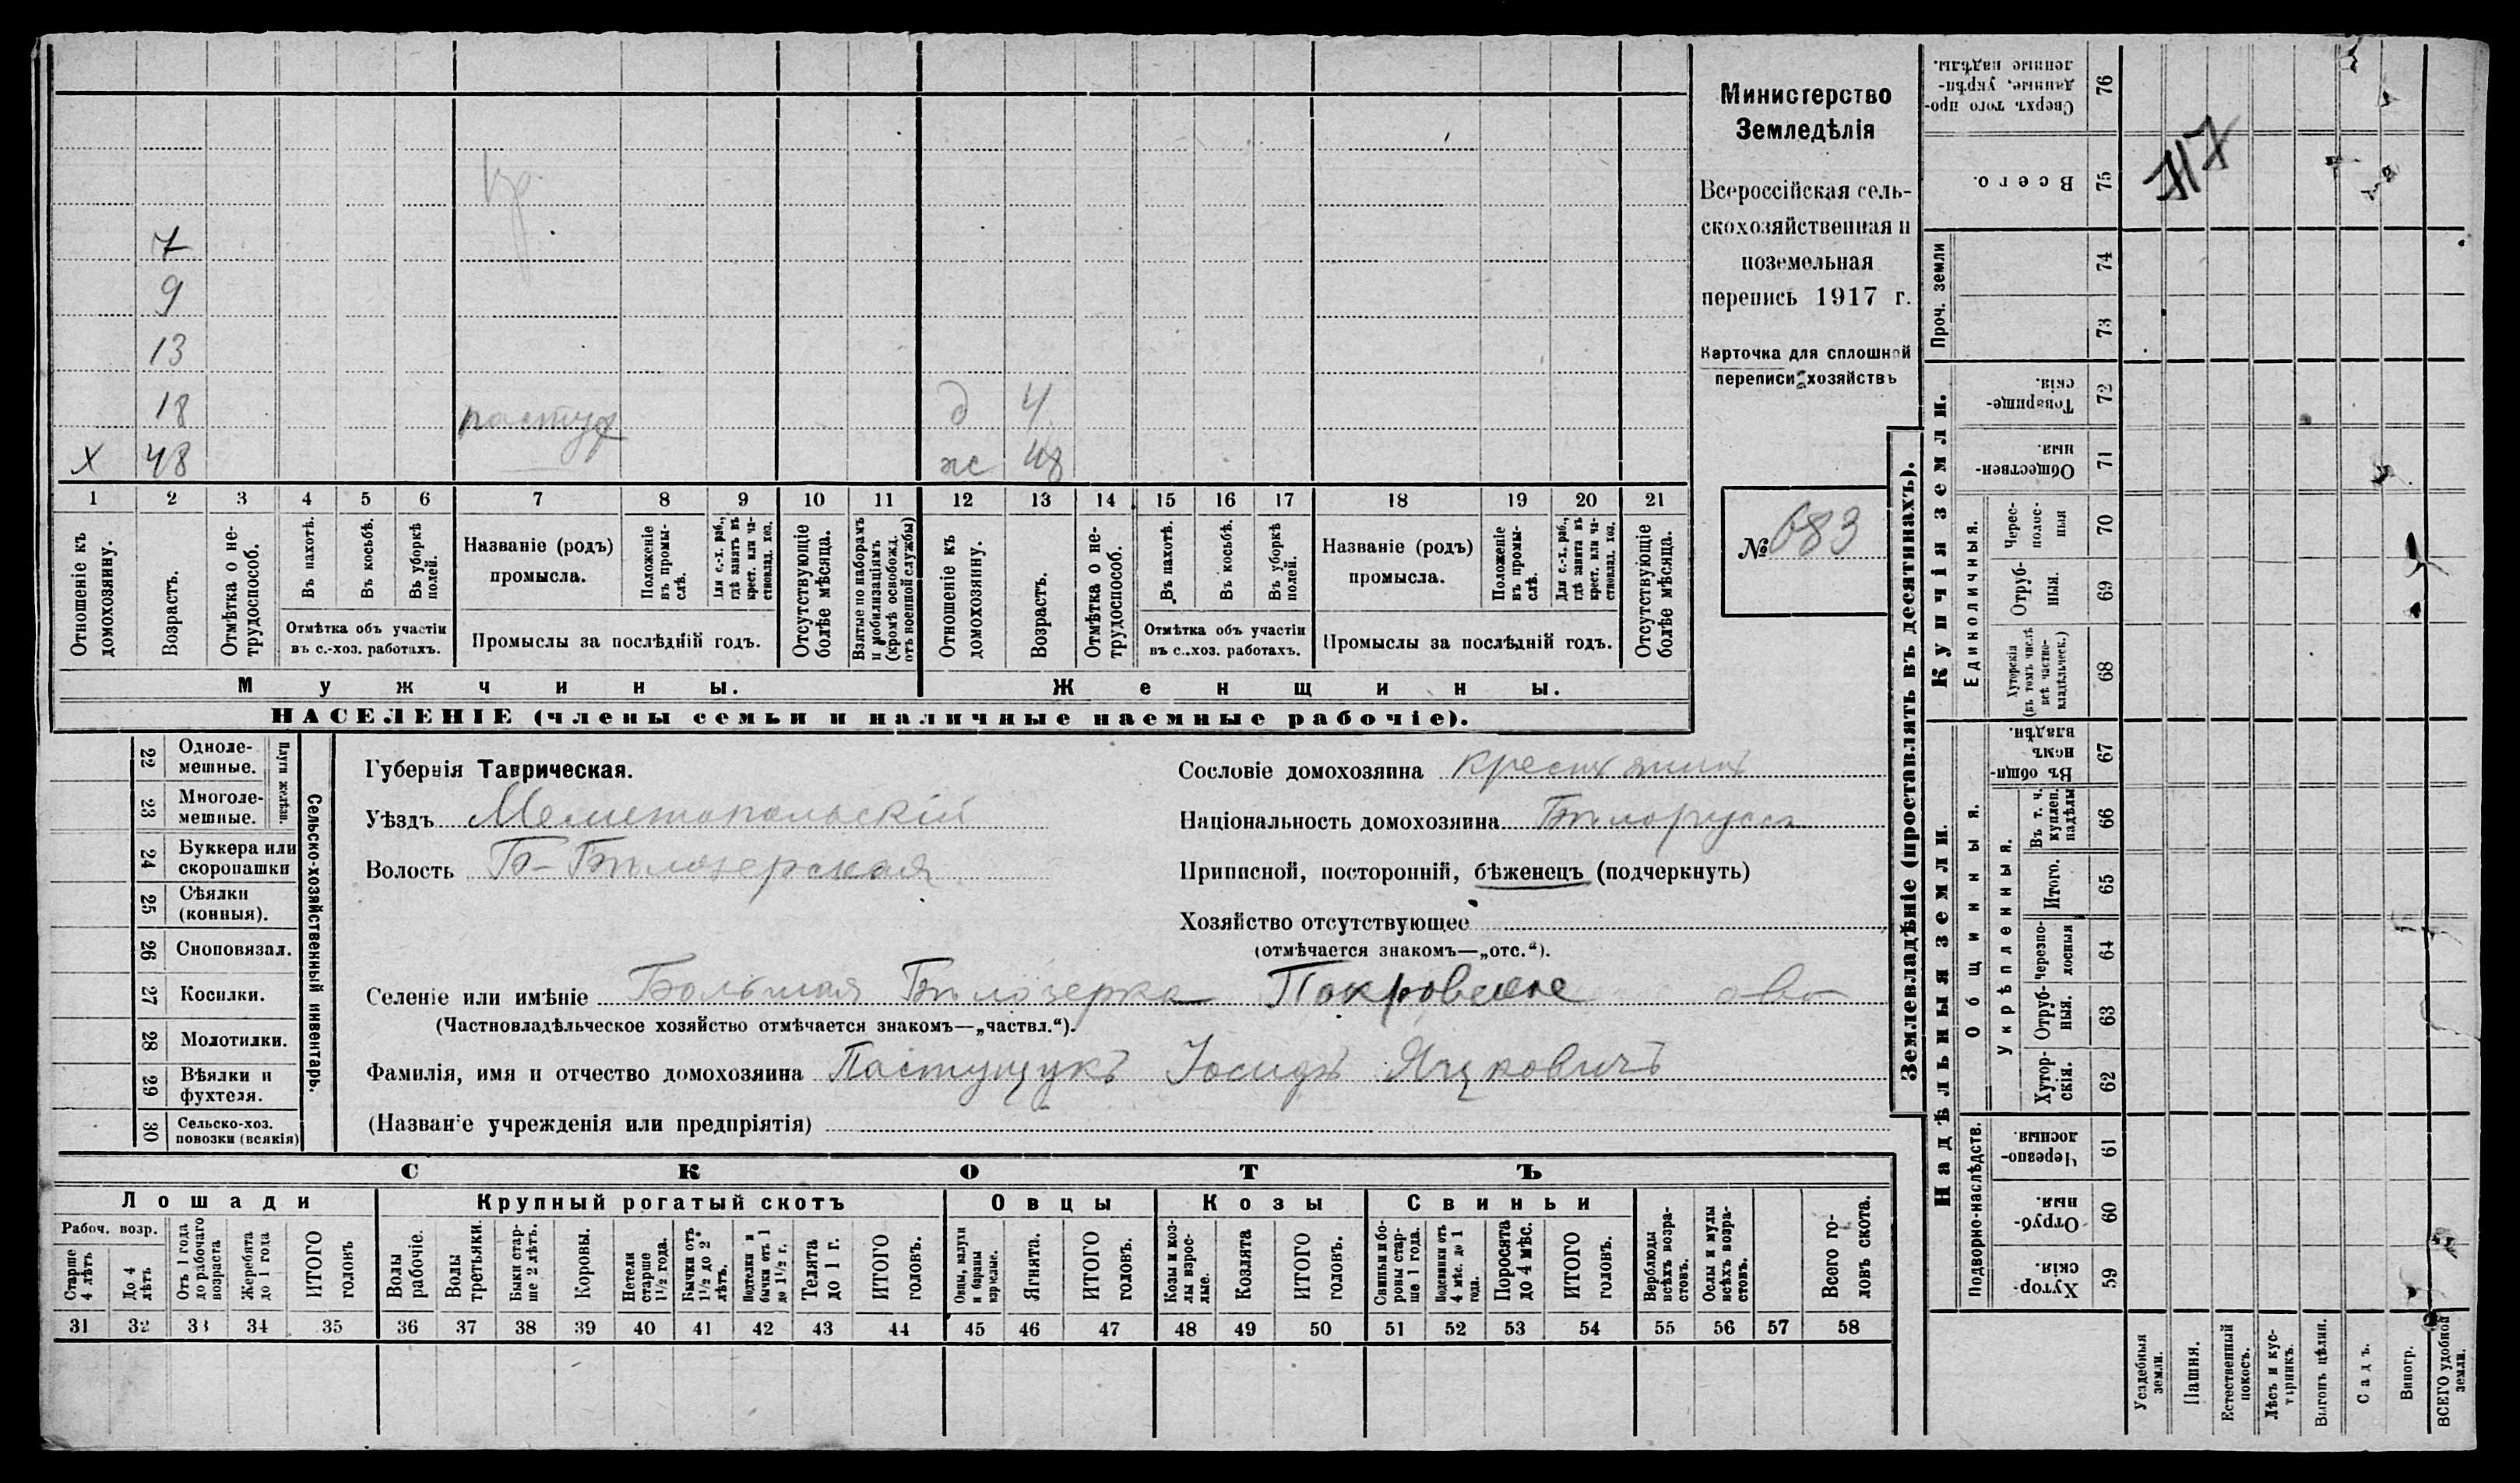 7
9
13
18 пастух д 4
х 48 ж 48
1 2 3 4 5 6 7 8 9 10 11 12 13 14 15 16 17 18 19 20 21
Отношеніе къ домохозяину.
Возрастъ.
Отмѣтка о нетрудоспособ.
Въ пахотѣ.
Въ косьбѣ.
Въ уборкѣ полей.
Отмѣтка объ участіи
въ с.-хоз. работахъ.
Названіе (родъ)
промысла.
Положеніе въ промыслѣ.
Для с.-х. раб., гдѣ занятъ въ крест. или частновлад. хоз.
Промыслы за послѣдній годъ.
Отсутствующіе болѣе мѣсяца.
Взятые по наборамъ и мобилизаціямъ (кромѣ освобожд. отъ военной службы)
Отношеніе къ домохозяину.
Возрастъ.
Отмѣтка о нетрудоспособ.
Въ пахотѣ.
Въ косьбѣ.
Въ уборкѣ полей.
Отмѣтка объ участіи
въ с.-хоз. работахъ.
Названіе (родъ)
промысла.
Положеніе въ промыслѣ.
Для с.-х. раб., гдѣ занята въ крест. или частновлад. хоз.
Промыслы за послѣдній годъ.
Отсутствующіе болѣе мѣсяца.
Мужчины. Женщины.
НАСЕЛЕНІЕ (члены семьи и наличные наемные рабочіе).
Министерство
Земледѣлія
Всероссійская сель-
скохозяйственная и
поземельная
перепись 1917 г.
Карточка для сплошной
переписи хозяйствъ
№ 683
22 Одноле-
мешные.
23 Многоле-
мешные.
Плуги желѣзн.
24 Буккера или
скоропашки
25 Сѣялки
(конныя).
26 Сноповязал.
27 Косилки.
28 Молотилки.
29 Вѣялки и
фухтеля.
30 Сельско-хоз.
повозки (всякія)
Сельско-хозяйственный инвентарь.
Губернія Таврическая.
Уѣздъ Мелитопольскій
Волость Б-Бѣлозерская
Сословіе домохозяина крестьянинъ
Національность домохозяина Бѣлоруссъ
Приписной, посторонній, бѣженецъ (подчеркнуть)
Хозяйство отсутствующее
(отмѣчается знакомъ—„отс.“).
Селеніе или имѣніе Большая Бѣлозерка Покровское о-во
(Частновладѣльческое хозяйство отмѣчается знакомъ—„частвл.“).
Фамилія, имя и отчество домохозяина Пастущукъ Іосифъ Яцковичъ
(Названіе учрежденія или предпріятія)
СКОТЪ
Лошади Крупный рогатый скотъ Овцы Козы Свиньи
Рабоч. возр.
Старше 4 лѣтъ
До 4 лѣтъ
Отъ 1 года до рабочаго возраста
Жеребята до 1 года
ИТОГО головъ
Волы рабочіе.
Волы третьяки.
Быки старше 2 лѣтъ.
Коровы.
Нетели старше 1½ года.
Бычки отъ 1½ до 2 лѣтъ.
Подтелки и бычки отъ 1 до 1½ г.
Телята до 1 г.
ИТОГО головъ.
Овцы, валухи и бараны взрослые.
Ягнята.
ИТОГО головъ.
Козы и козлы взрослые.
Козлята
ИТОГО головъ.
Свиньи и боровы старше 1 года.
Подсвинки отъ 4 мѣс. до 1 года.
Поросята до 4 мѣс.
ИТОГО головъ.
Верблюды всѣхъ возрастовъ.
Ослы и мулы всѣхъ возрастовъ.
Всего головъ скота.
31 32 33 34 35 36 37 38 39 40 41 42 43 44 45 46 47 48 49 50 51 52 53 54 55 56 57 58
Землевладѣніе (проставлять въ десятинахъ).
Сверхъ того проданные, укрѣпленные надѣлы. 76
Всего. 75
Проч. земли 74
73
Купчія земли.
Товарищескія. 72
Общественныя. 71
Единоличныя.
Черес-полосныя 70
Отрубныя. 69
Хуторскія (въ томъ числѣ всѣ частновладѣльческ.) 68
Надѣльныя земли.
Общинныя.
Въ общинномъ владѣн. 67
Укрѣпленныя.
Въ т. ч. куплен. надѣлы 66
Итого. 65
Черезполосныя 64
Отрубныя. 63
Хуторскія. 62
Подворно-наслѣдств.
Черезполосныя. 61
Отрубныя. 60
Хуторскія. 59
Усадебныя земли.
Пашня.
Естественный покосъ.
Лѣсъ и кустарникъ.
Выгонъ цѣлин.
Садъ.
Виногр.
ВСЕГО удобной земли.